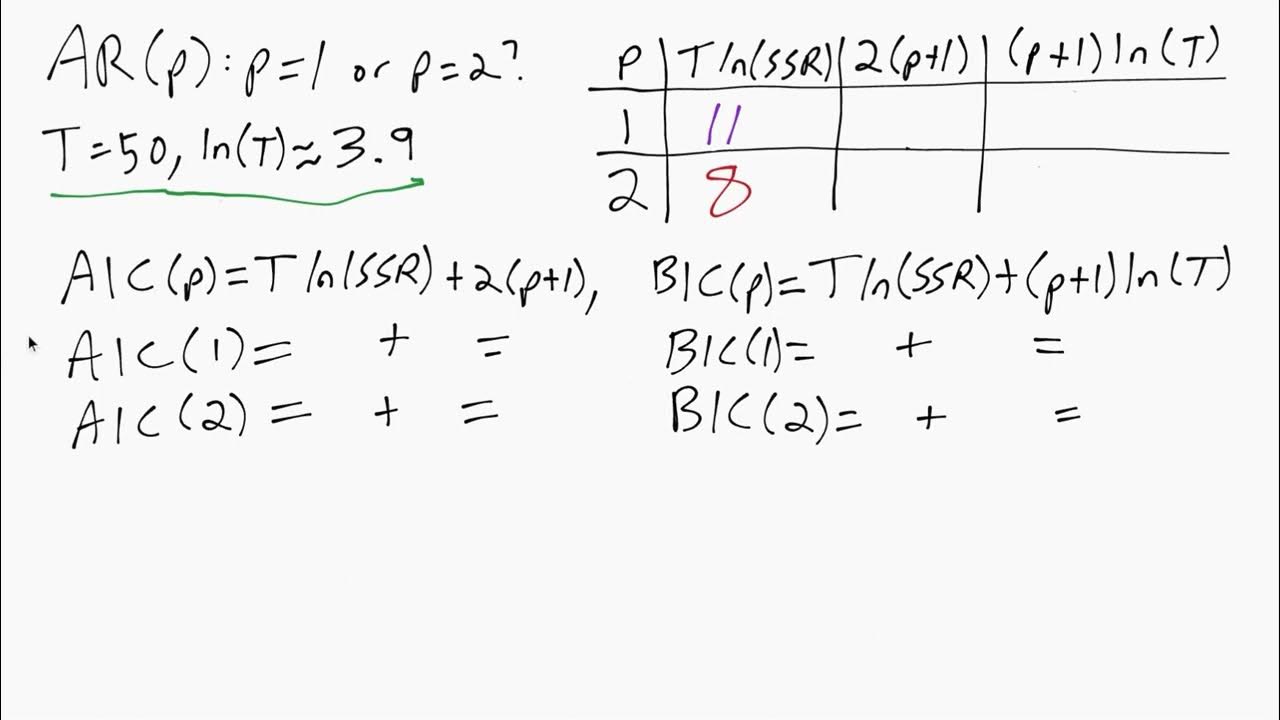 AR(p): p=1 or p=2?
T=50, ln(T)≈3.9
p | T ln(SSR) | 2(p+1) | (p+1) ln(T)
1 | 11
2 | 8
AIC(p)=T ln(SSR)+2(p+1), BIC(p)=T ln(SSR)+(p+1) ln(T)
AIC(1)= + = BIC(1)= + =
AIC(2)= + = BIC(2)= + =